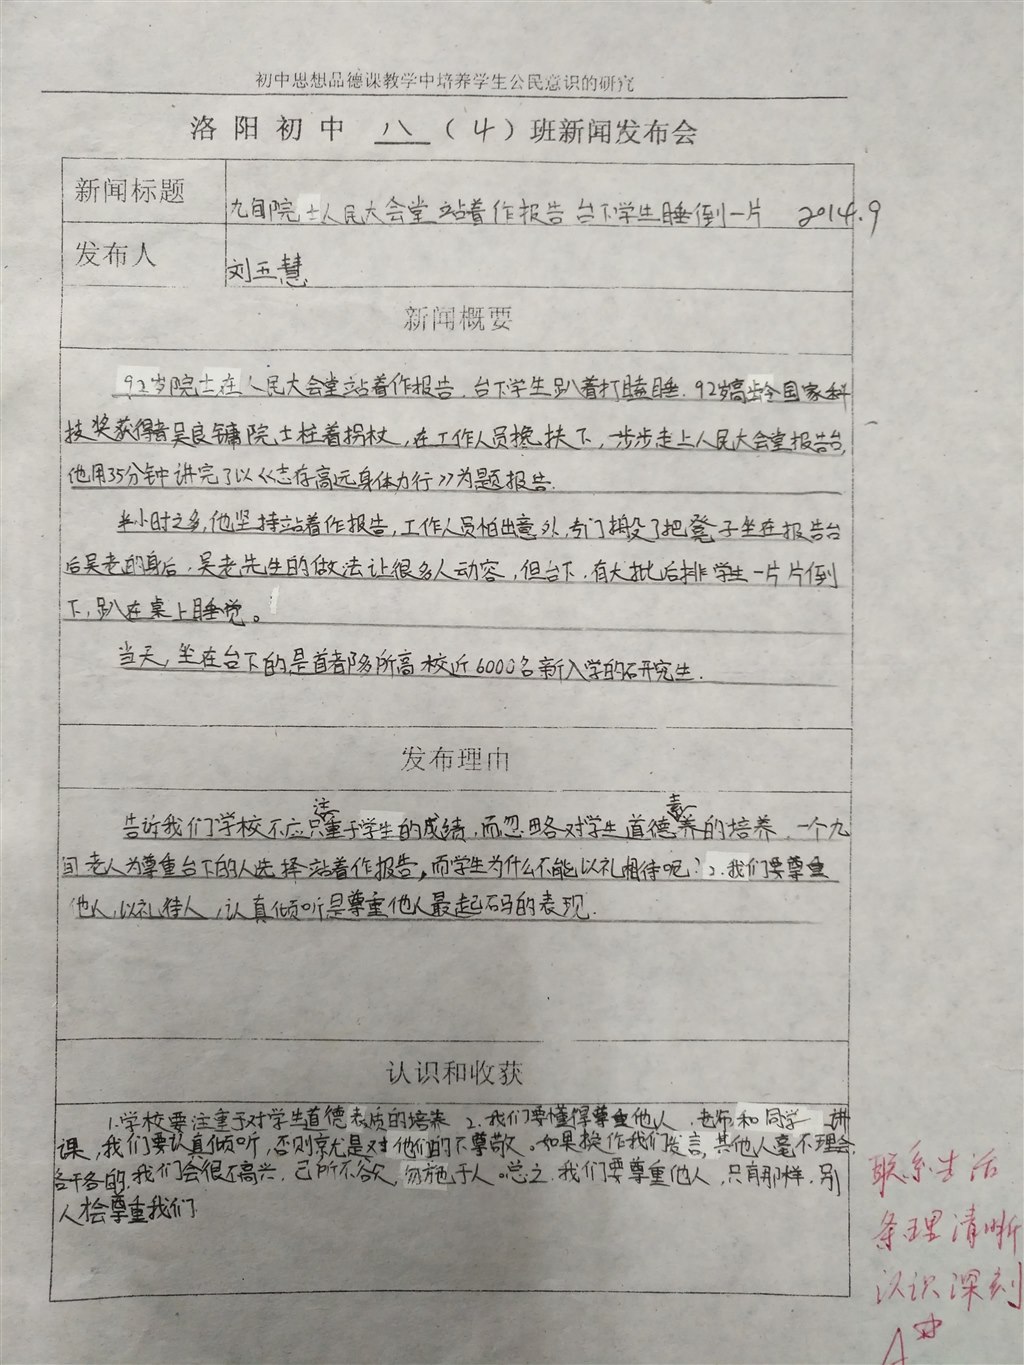 初中思想品德课教学中培养学生公民意识的研究
洛阳初中 八 (4) 班新闻发布会
新闻标题 九旬院士人民大会堂站着作报告 台下学生睡倒一片 2014.9
发布人 刘五慧
新闻概要
92岁院士在人民大会堂站着作报告,台下学生趴着打瞌睡.92岁高龄全国家科
技奖获得者吴良镛院士柱着拐杖,在工作人员搀扶下,一步步走上人民大会堂报告台,
他用35分钟讲完了以《志存高远身体力行》为题报告.
半小时之多,他坚持站着作报告,工作人员怕出意外,专门搬了把凳子坐在报告台
后吴老的身后.吴老先生的做法让很多人动容,但台下,有大批后排学生一片片倒
下,趴在桌上睡觉。
当天,坐在台下的是首都多所高校近6000名新入学的研究生.
发布理由
告诉我们学校不应只注重于学生的成绩,而忽略对学生道德素养的培养.一个九
旬老人为尊重台下的人选择站着作报告,而学生为什么不能以礼相待呢?2.我们要尊重
他人,以礼待人,认真倾听是尊重他人最起码的表现.
认识和收获
1.学校要注重于对学生道德素质的培养 2.我们要懂得尊重他人.老师和同学讲
课,我们要认真倾听,否则就是对他们的不尊敬。如果换作我们发言,其他人毫不理会,
各干各的,我们会很不高兴.己所不欲,勿施于人。总之.我们要尊重他人,只有那样.别
人才会尊重我们
联系生活
条理清晰
认识深刻
A